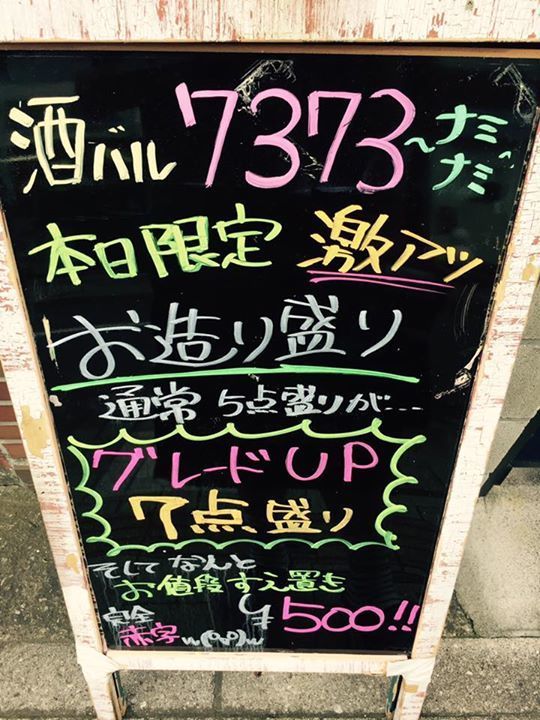 酒バル 7373 〜ナミナミ〜
本日限定 激アツ
お造り盛り
通常 5点盛りが…
グレードUP
7点盛り
そしてなんと
お値段すえ置き
完全
赤字 m(_ _)m ¥500!!